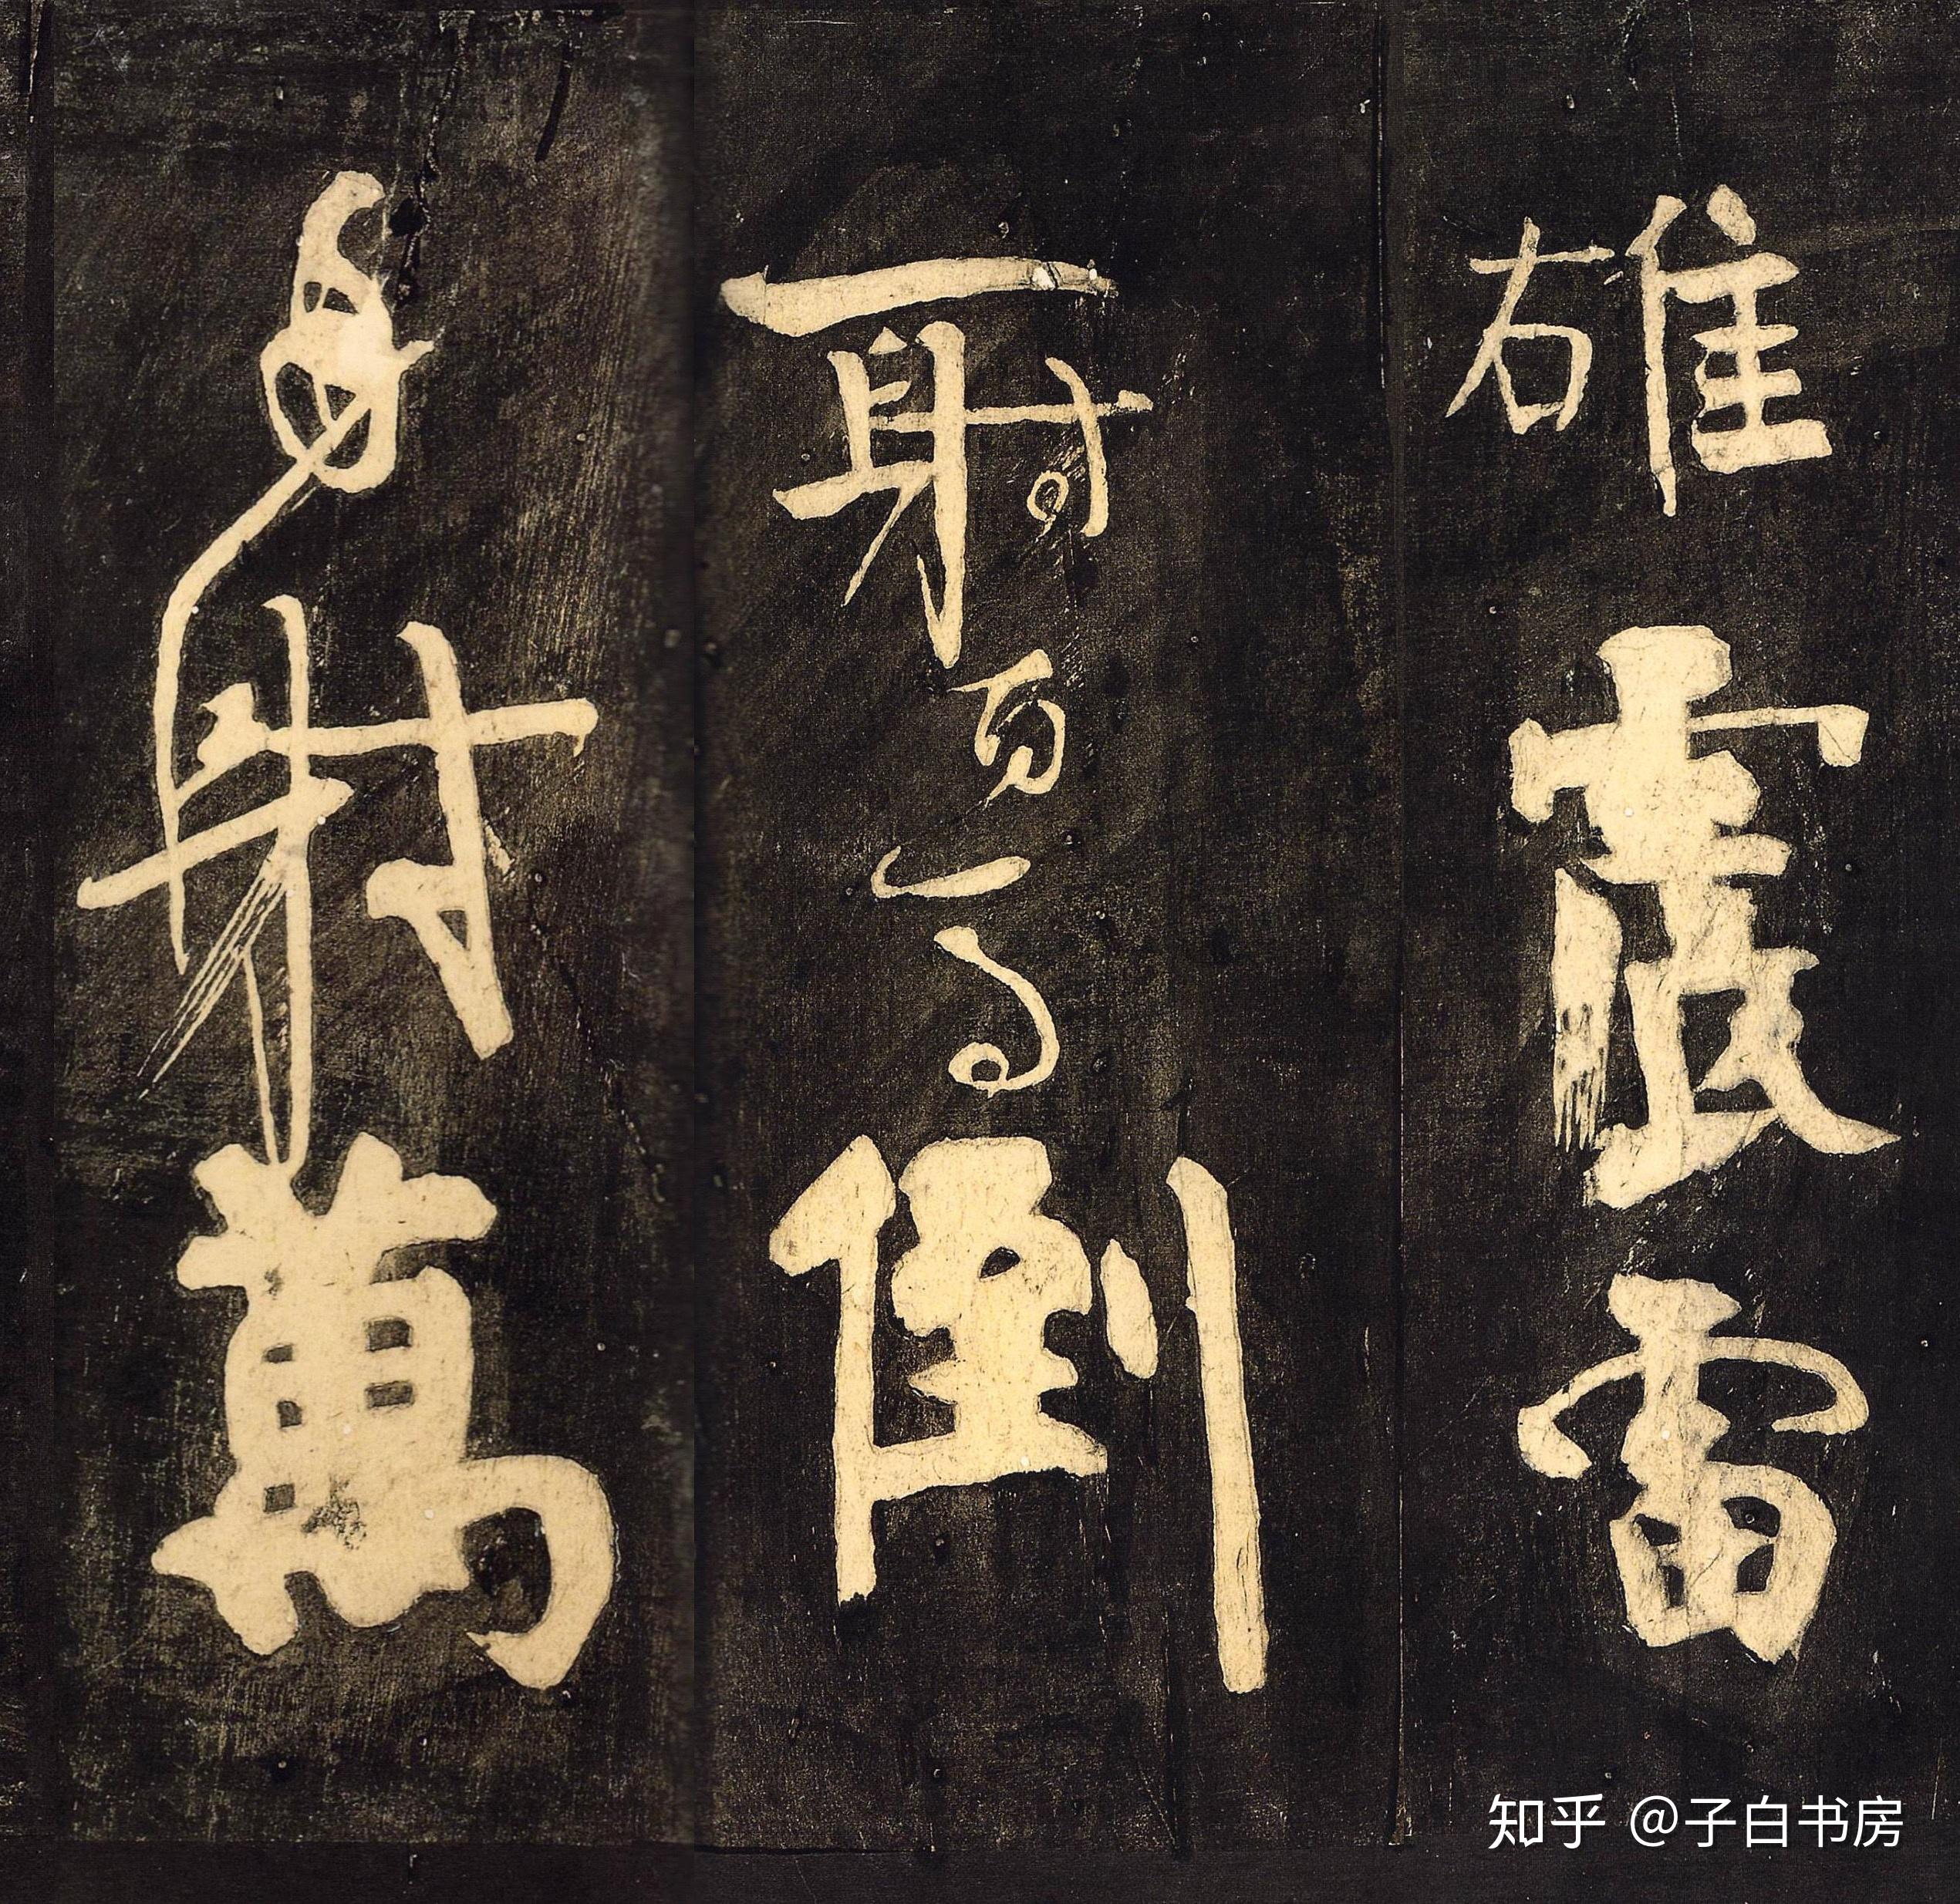 雄震雷
一射百馬倒
再射萬
知乎 @子白书房